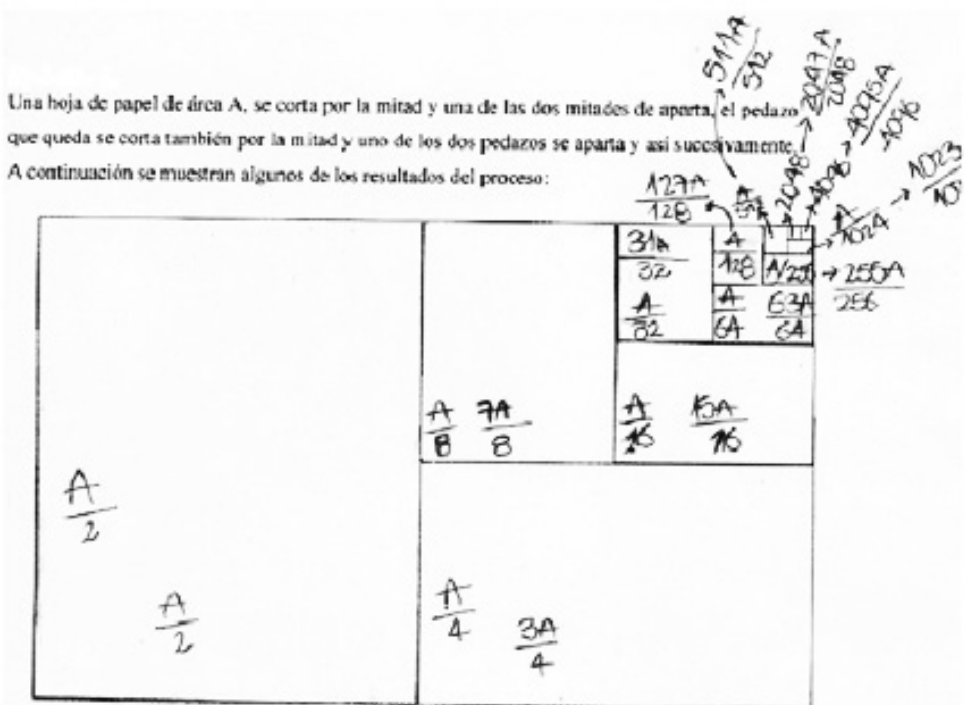 Una hoja de papel de área A, se corta por la mitad y una de las dos mitades de aparta, el pedazo
que queda se corta también por la mitad y uno de los dos pedazos se aparta y asi sucesivamente.
A continuación se muestran algunos de los resultados del proceso:
511A
512
2047A
2048
4095A
4096
1023
127A
128
A
2048
4096
A
1024
31A
32
A
128
A/256
255A
256
A
32
A
64
63A
64
A
8
7A
8
A
16
15A
16
A
2
A
2
A
4
3A
4